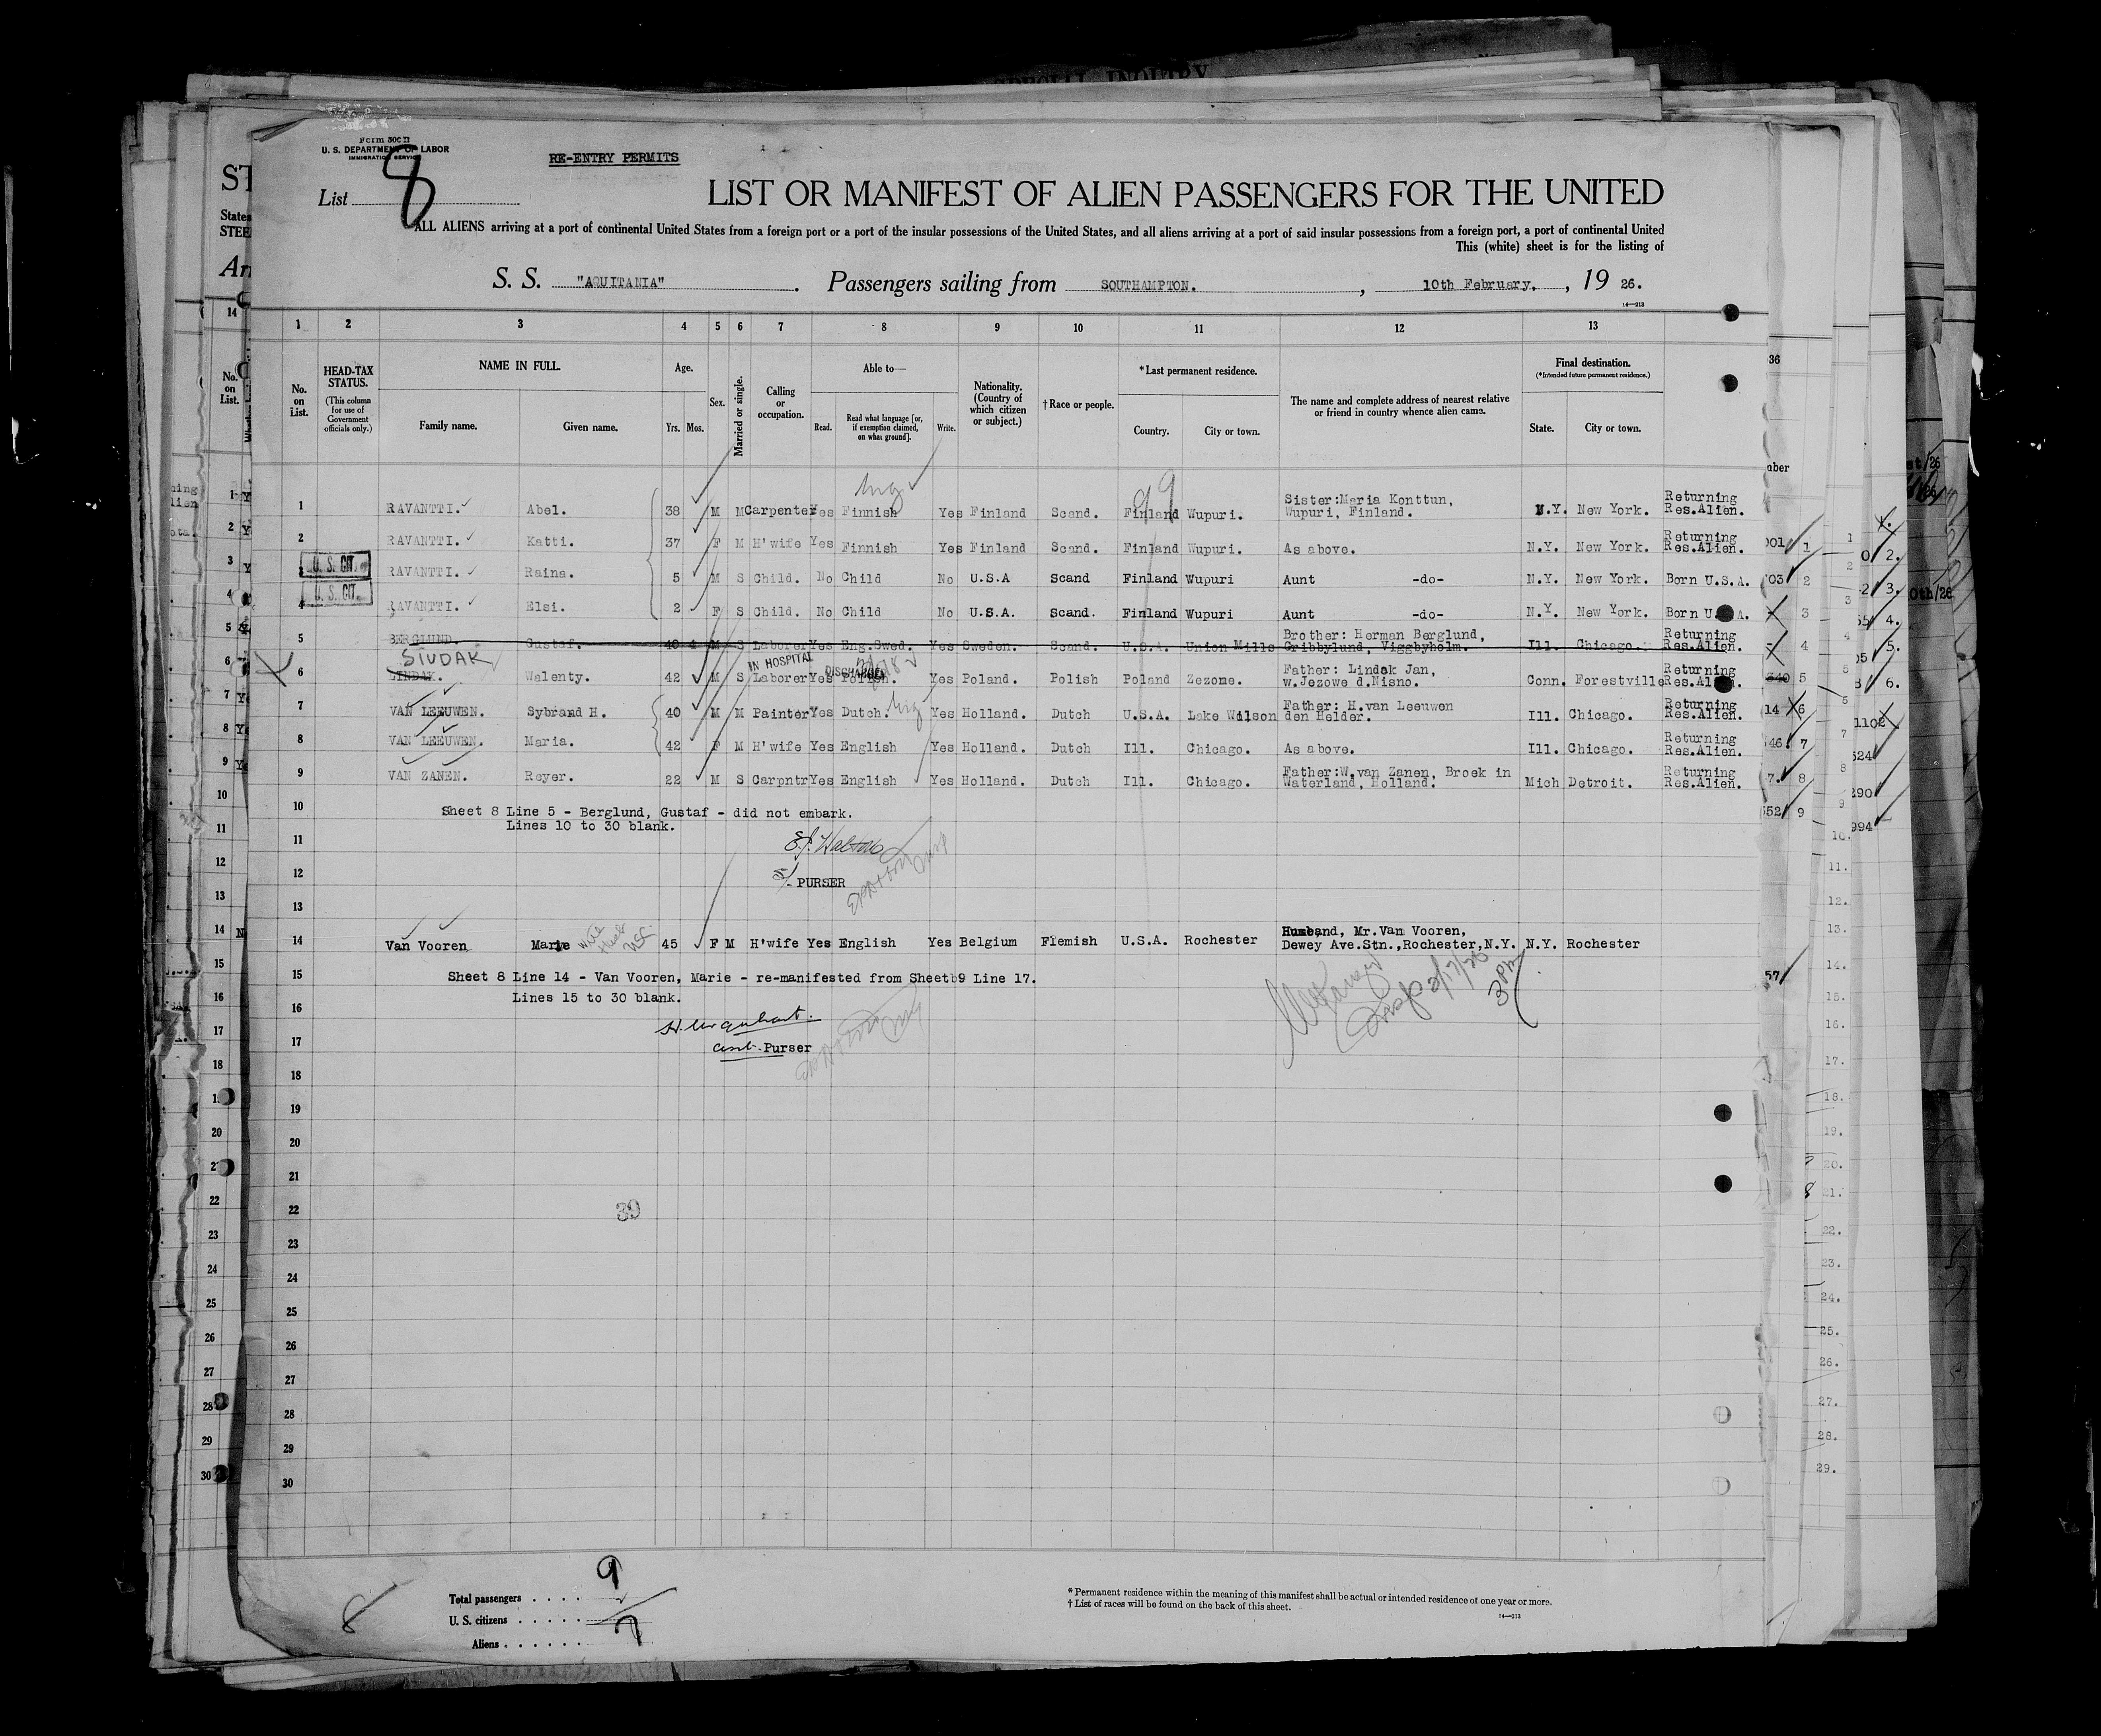 SPECIAL INQUIRY
Form 500 D
U. S. DEPARTMENT OF LABOR
IMMIGRATION SERVICE
RE-ENTRY PERMITS
List 8
LIST OR MANIFEST OF ALIEN PASSENGERS FOR THE UNITED
ALL ALIENS arriving at a port of continental United States from a foreign port or a port of the insular possessions of the United States, and all aliens arriving at a port of said insular possessions from a foreign port, a port of continental United
This (white) sheet is for the listing of
S. S. "AQUITANIA". Passengers sailing from SOUTHAMPTON. , 10th February, , 19 26.
14—213
1 2 3 4 5 6 7 8 9 10 11 12 13
No. on List. HEAD-TAX STATUS. (This column for use of Government officials only.) NAME IN FULL. Family name. Given name. Age. Yrs. Mos. Sex. Married or single. Calling or occupation. Able to— Read. Read what language [or, if exemption claimed, on what ground]. Write. Nationality. (Country of which citizen or subject.) †Race or people. *Last permanent residence. Country. City or town. The name and complete address of nearest relative or friend in country whence alien came. Final destination. (*Intended future permanent residence.) State. City or town.
1 RAVANTTI. Abel. 38 M M Carpenter Yes Finnish Yes Finland Scand. Finland Wupuri. Sister:Maria Konttun, Wupuri, Finland. N.Y. New York. Returning Res.Alien.
2 RAVANTTI. Katti. 37 F M H'wife Yes Finnish Yes Finland Scand. Finland Wupuri. As above. N.Y. New York. Returning Res.Alien.
U. S. CIT.
3 RAVANTTI. Raina. 5 M S Child. No Child No U.S.A Scand Finland Wupuri Aunt -do- N.Y. New York. Born U.S.A.
U. S. CIT.
4 RAVANTTI. Elsi. 2 F S Child. No Child No U.S.A. Scand. Finland Wupuri Aunt -do- N.Y. New York. Born U.S.A.
5 BERGLUND. Gustaf. 40 4 M S Laborer Yes Eng.Swed. Yes Sweden. Scand. U.S.A. Union Mills Brother: Herman Berglund, Gribbylund, Viggbyholm. Ill. Chicago. Returning Res.Alien.
SIUDAK
IN HOSPITAL DISCHARGED
6 SINDAY. Walenty. 42 M S Laborer Yes Polish. Yes Poland. Polish Poland Zezome. Father: Lindak Jan, w.Jezowe d.Nisno. Conn. Forestville Returning Res.Alien.
7 VAN LEEUWEN. Sybrand H. 40 M M Painter Yes Dutch. Yes Holland. Dutch U.S.A. Lake Wilson Father: H.van Leeuwen den Helder. Ill. Chicago. Returning Res.Alien.
8 VAN LEEUWEN. Maria. 42 F M H'wife Yes English Yes Holland. Dutch Ill. Chicago. As above. Ill. Chicago. Returning Res.Alien.
9 VAN ZANEN. Reyer. 22 M S Carpntr Yes English Yes Holland. Dutch Ill. Chicago. Father:W.van Zanen, Broek in Waterland, Holland. Mich Detroit. Returning Res.Alien.
10 Sheet 8 Line 5 - Berglund, Gustaf - did not embark.
Lines 10 to 30 blank.
11
12 PURSER
13
14 Van Vooren Marie 45 F M H'wife Yes English Yes Belgium Flemish U.S.A. Rochester Husband, Mr.Van Vooren, Dewey Ave.Stn.,Rochester,N.Y. N.Y. Rochester
15 Sheet 8 Line 14 - Van Vooren, Marie - re-manifested from Sheet 9 Line 17.
Lines 15 to 30 blank.
16 H. Urquhart.
17 asst. Purser
18
19
20
21
22 39
23
24
25
26
27
28
29
30
8
Total passengers . . . . 9
U. S. citizens . . . . .
Aliens . . . . . . 7
* Permanent residence within the meaning of this manifest shall be actual or intended residence of one year or more.
† List of races will be found on the back of this sheet.
14—213